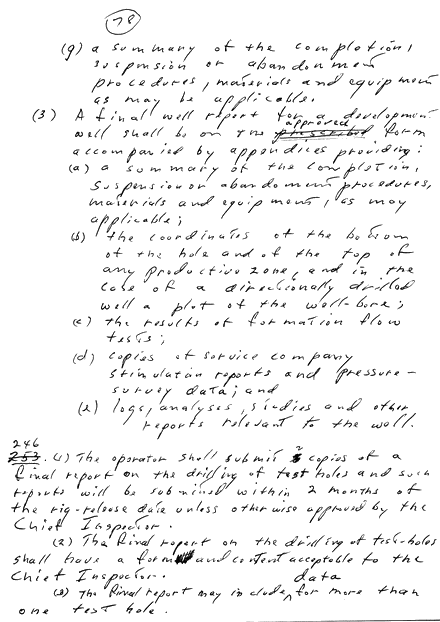 78
(g) a summary of the completion,
suspension or abandonment
procedures, materials and equipment
as may be applicable.
(3) A final well report for a development
approved
well shall be on the prescribed form
accompanied by appendices providing:
(a) a summary of the completion,
suspension or abandonment procedures,
materials and equipment, as may
applicable;
(b) the coordinates of the bottom
of the hole and of the top of
any productive zone, and in the
case of a directionally drilled
well a plot of the well-bore;
(c) the results of formation flow
tests;
(d) copies of service company
stimulation reports and pressure-
survey data; and
(e) logs, analyses, studies and other
reports relevant to the well.
246
253. (1) The operator shall submit 2 copies of a
final report on the drilling of test holes and such
reports will be submitted within 2 months of
the rig-release date unless otherwise approved by the
Chief Inspector.
(2) The final report on the drilling of test-holes
shall have a form and content acceptable to the
Chief Inspector.
data
(3) The final report may include for more than
one test hole.